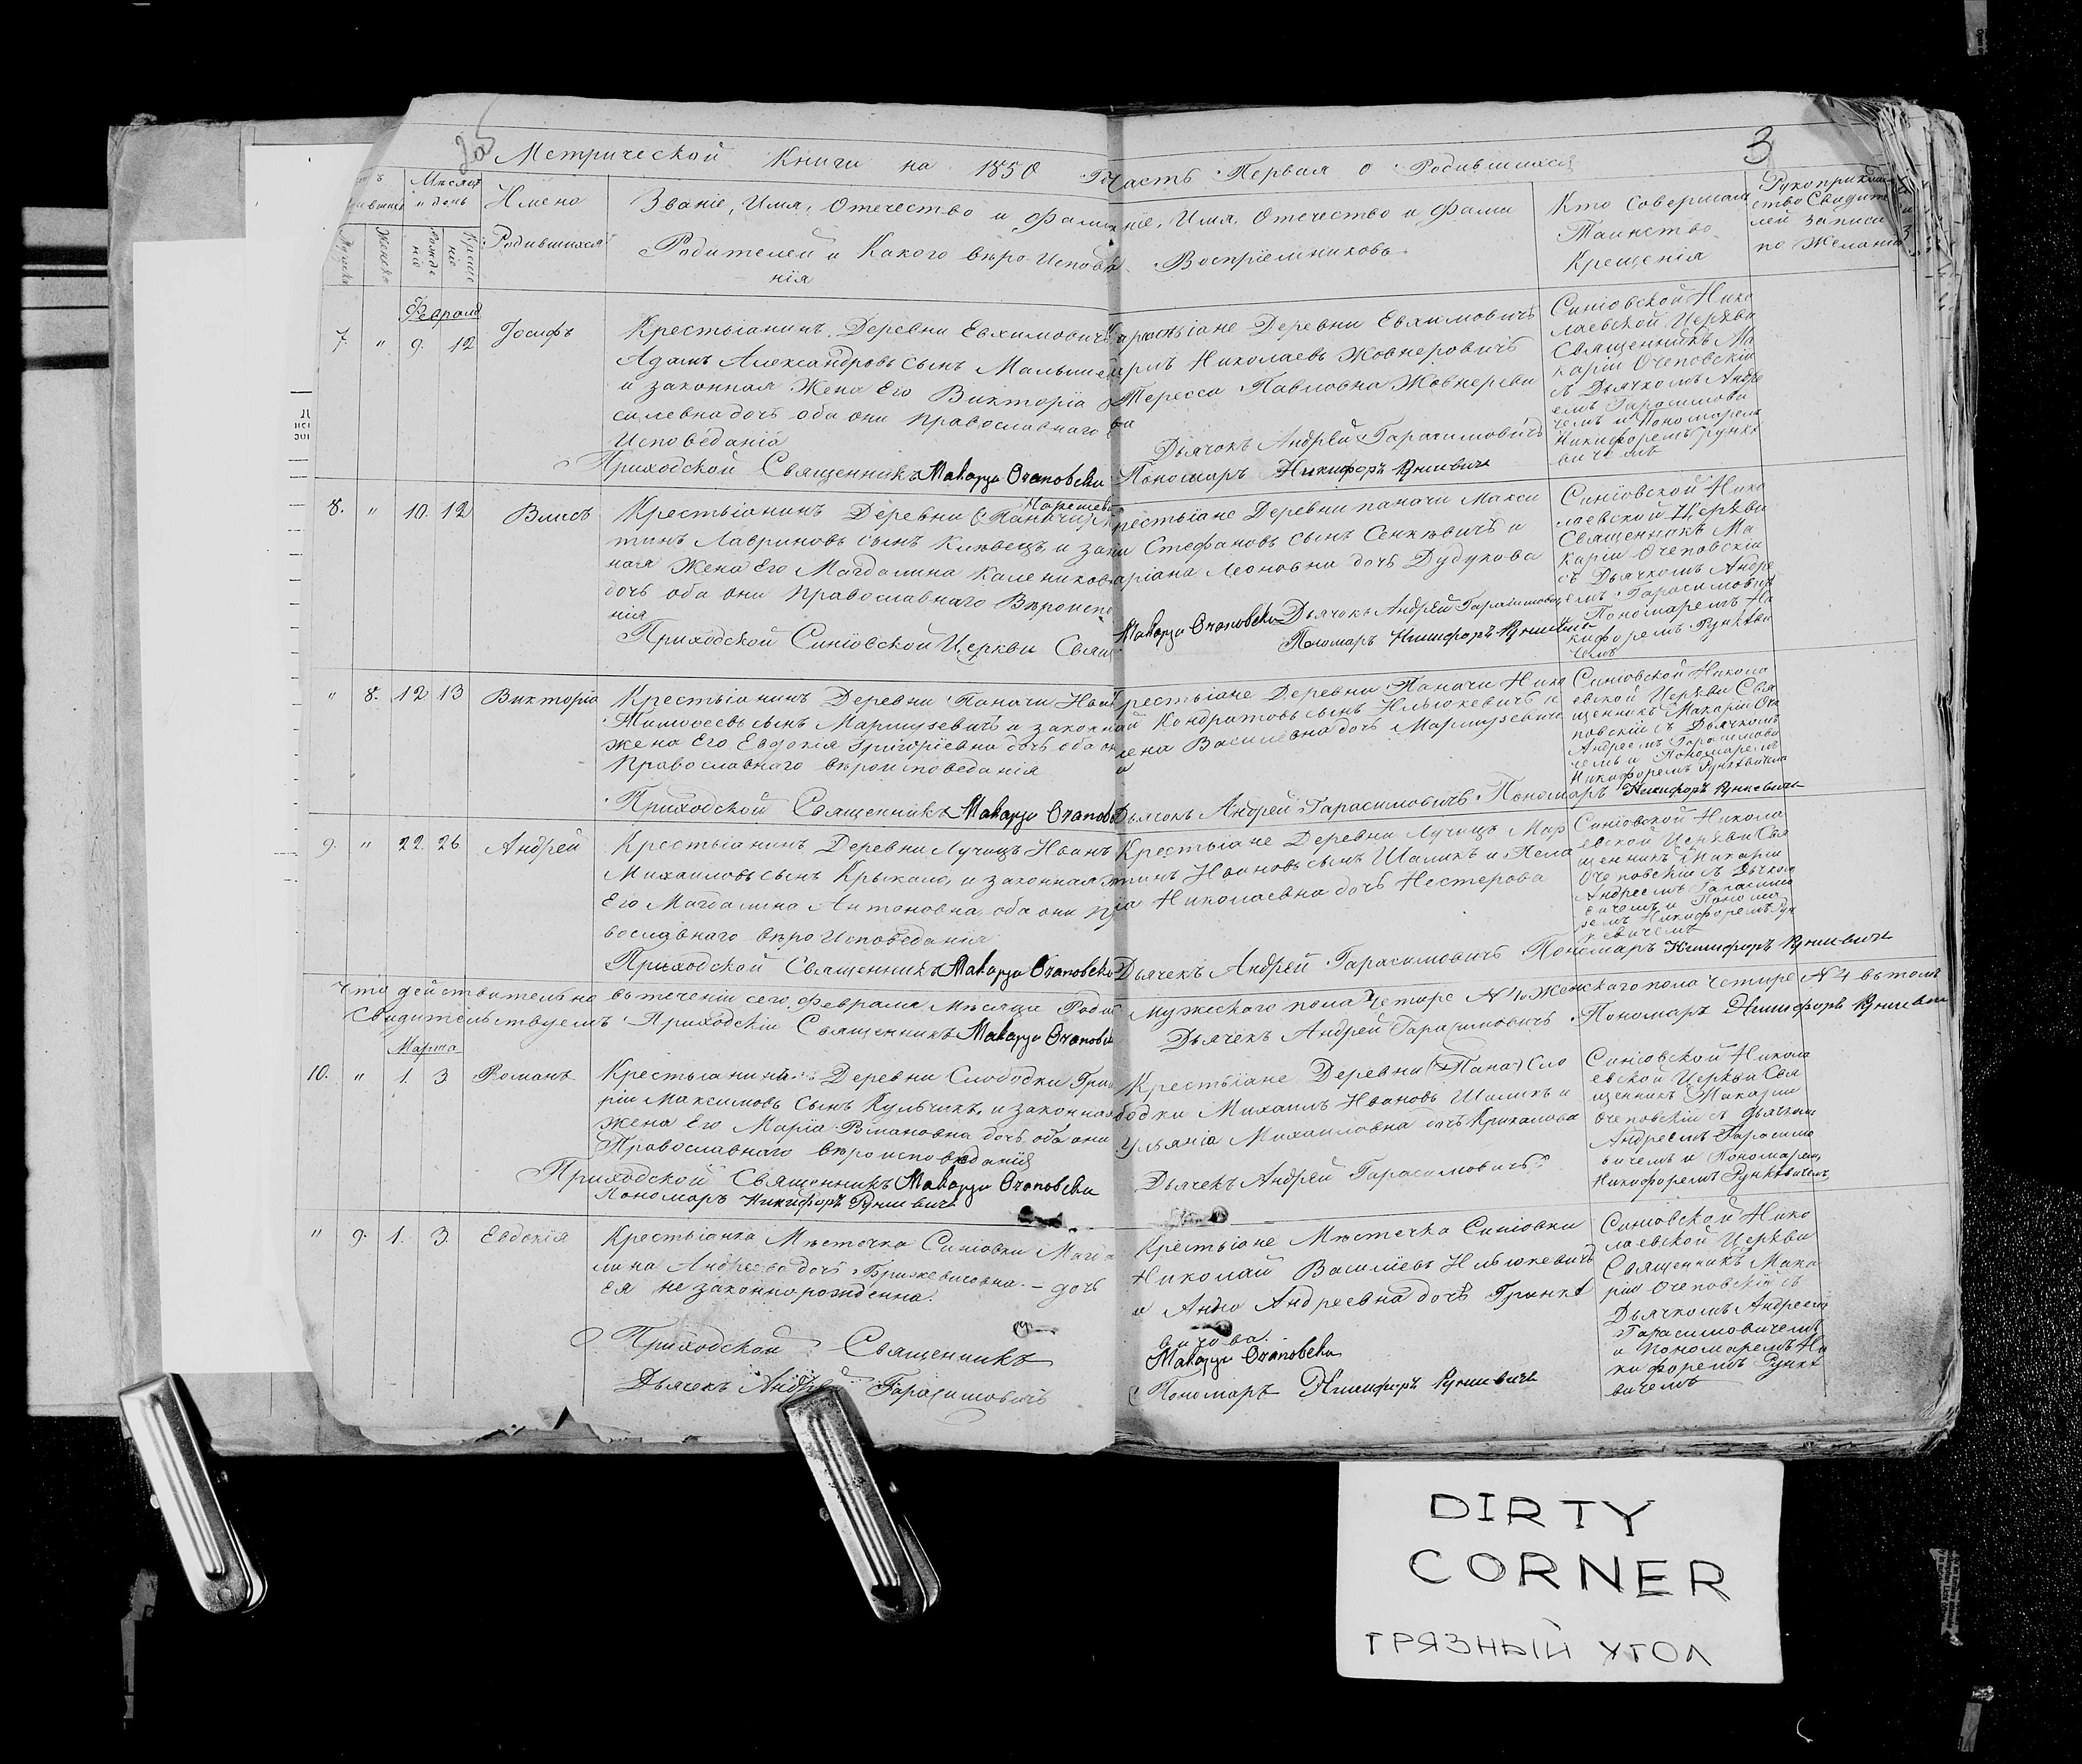 Метрической Книги на 1850 Го
Часть Первая о Родившихся
3
Мѣсяцъ и день
Имена Родившихся
Званіе, Имя, Отечество и Фами
Родителей и Какого вѣро-Исповѣ
нія
ніе, Имя, Отечество и Фами
Воспріемниковъ
Кто Совершалъ
Таинство
Крещенія
Рукоприклад
ство Свидѣт
лей записи
по Желанію
Февраля
7. " 9. 12 Іосифъ
Крестьianинъ Деревни Евхимовичъ
Адамъ Александровъ Сынъ Малыше
и законная Жена Его Викторія
силевна дочь оба они Православнаго
Исповѣданія
Приходской Священникъ Макарій Очаповскій
Деревни Евхимовичъ
Николаевъ Жовнеровичъ
Тереса Павловна Жовнерови
ва
Дьячокъ Андрей Гарасимовичъ
Пономаръ Никифоръ Рункевичъ
Синіовской Нико
лаевской Церкви
Священникъ Ма
карій Очеповскій
съ Дьячкомъ Андре
емъ Гарасимови
чемъ и Пономаремъ
Никифоремъ Рунке
вичемъ
8. " 10. 12 Власъ
Крестьianинъ Деревни Паначи
тинъ Лавриновъ сынъ Кижвецъ, и зак
ная Жена Его Магдалина Калеников
дочь оба они Православнаго Вѣроиспо
нія
Приходской Синіовской Церкви Свящ
рестьiane Деревни паначи Макси
Стефановъ сынъ Сенкевичъ и
аріана Леоновна дочь Дудукова
Макарій Очаповскій Дьячокъ Андрей Гарасимович
Пономаръ Никифоръ Рункевичъ
Синіовской Нико
лаевской Церкви
Священникъ Ма
карій Очеповскій
съ Дьячкомъ Андре
емъ Гарасимовиче
Пономаремъ Ни
кифоремъ Рункеви
чемъ
" 8. 12 13 Викторіа
Крестьianинъ Деревни Паначи Иван
Тимофеевъ сынъ Мартусевичъ и законн
жена Его Евдокія Григоріевна дочь оба он
Православнаго вѣроисповеданія
Приходской Священникъ Макарій Очапов
рестьiane Деревни Паначи Ника
Кондратовъ сынъ Ильюкевичъ и
лена Василевна дочь Мартусевич
а
Дьячокъ Андрей Гарасимовичъ Пономаръ Никифоръ Рункевичъ
Синіовской Никола
евской Церкви Свя
щенникъ Макарій Оче
повскій съ Дьячкомъ
Андреемъ Гарасимови
чемъ и Пономаремъ
Никифоремъ Рункевичемъ
9. " 22. 26 Андрей
Крестьianинъ Деревни Лучицъ Иванъ
Михаиловъ сынъ Крыкало, и законная
Его Магдалина Антоновна оба они Пр
вославнаго вѣро Исповеданія
Приходской Священникъ Макарій Очаповскій
Крестьiane Деревни Лучицъ Мар
тинъ Ивановъ сынъ Шаликъ и Пела
ія Николаевна дочь Нестерова
Дьячекъ Андрей Гарасимовичъ Пономаръ Никифоръ Рункевичъ
Синіовской Никола
евской Церкви Свя
щенникъ Макарій
Очеповскій съ Дьячко
Андреемъ Гарасимо
вичемъ и Понома
ремъ Никифоремъ Рун
кевичемъ
Что действительно въ теченіи сего Февраля Мѣсяца Роди
Мужескаго пола Четире N 4 Женскаго пола четире N 4 въ томъ
Свидительствуемъ Приходскій Священникъ Макарій Очаповскій
Дьячекъ Андрей Гарасимовичъ Пономаръ Никифоръ Рункевичъ
Марта
10. " 1. 3 Романъ
Крестьianинъ Деревни Слободки Григо
рій Максимовъ Сынъ Кульчикъ, и законная
жена Его Марія Романовна дочь оба они
Православнаго вѣроисповѣданія
Приходской Священникъ Макарій Очаповскій
Пономаръ Никифоръ Рункевичъ
Крестьiane Деревни (Пана) Сло
бодки Михаилъ Ивановъ Шаликъ и
Ульяніа Михаиловна дочь Крикалова
Дьячекъ Андрей Гарасимовичъ
Синіовской Никола
евской Церкви Свя
щенникъ Макарій
Очеповскій съ Дьячкомъ
Андреемъ Гарасимо
вичемъ и Пономарем
Никифоремъ Рункевичемъ
" 9. 1. 3 Евдокія
Крестьianка Мѣстечка Синіовки Магда
лина Андреева дочь Брижевисовна. – дочь
Ея не законно рожденна.
Приходской Священникъ
Дьячекъ Андрей Гарасимовичъ
Крестьiane Мѣстечка Синіовки
Николай Василіевъ Ильюкевичъ
и Анна Андреевна дочь Гринке
вичова.
Макарій Очаповскій
Пономаръ Никифоръ Рункевичъ
Синіовской Нико
лаевской Церкви
Священникъ Мака
рій Очеповскій съ
Дьячкомъ Андреемъ
Гарасимовичемъ
и Пономаремъ Ни
кифоремъ Рунке
вичемъ
DIRTY
CORNER
ГРЯЗНЫЙ УГОЛ